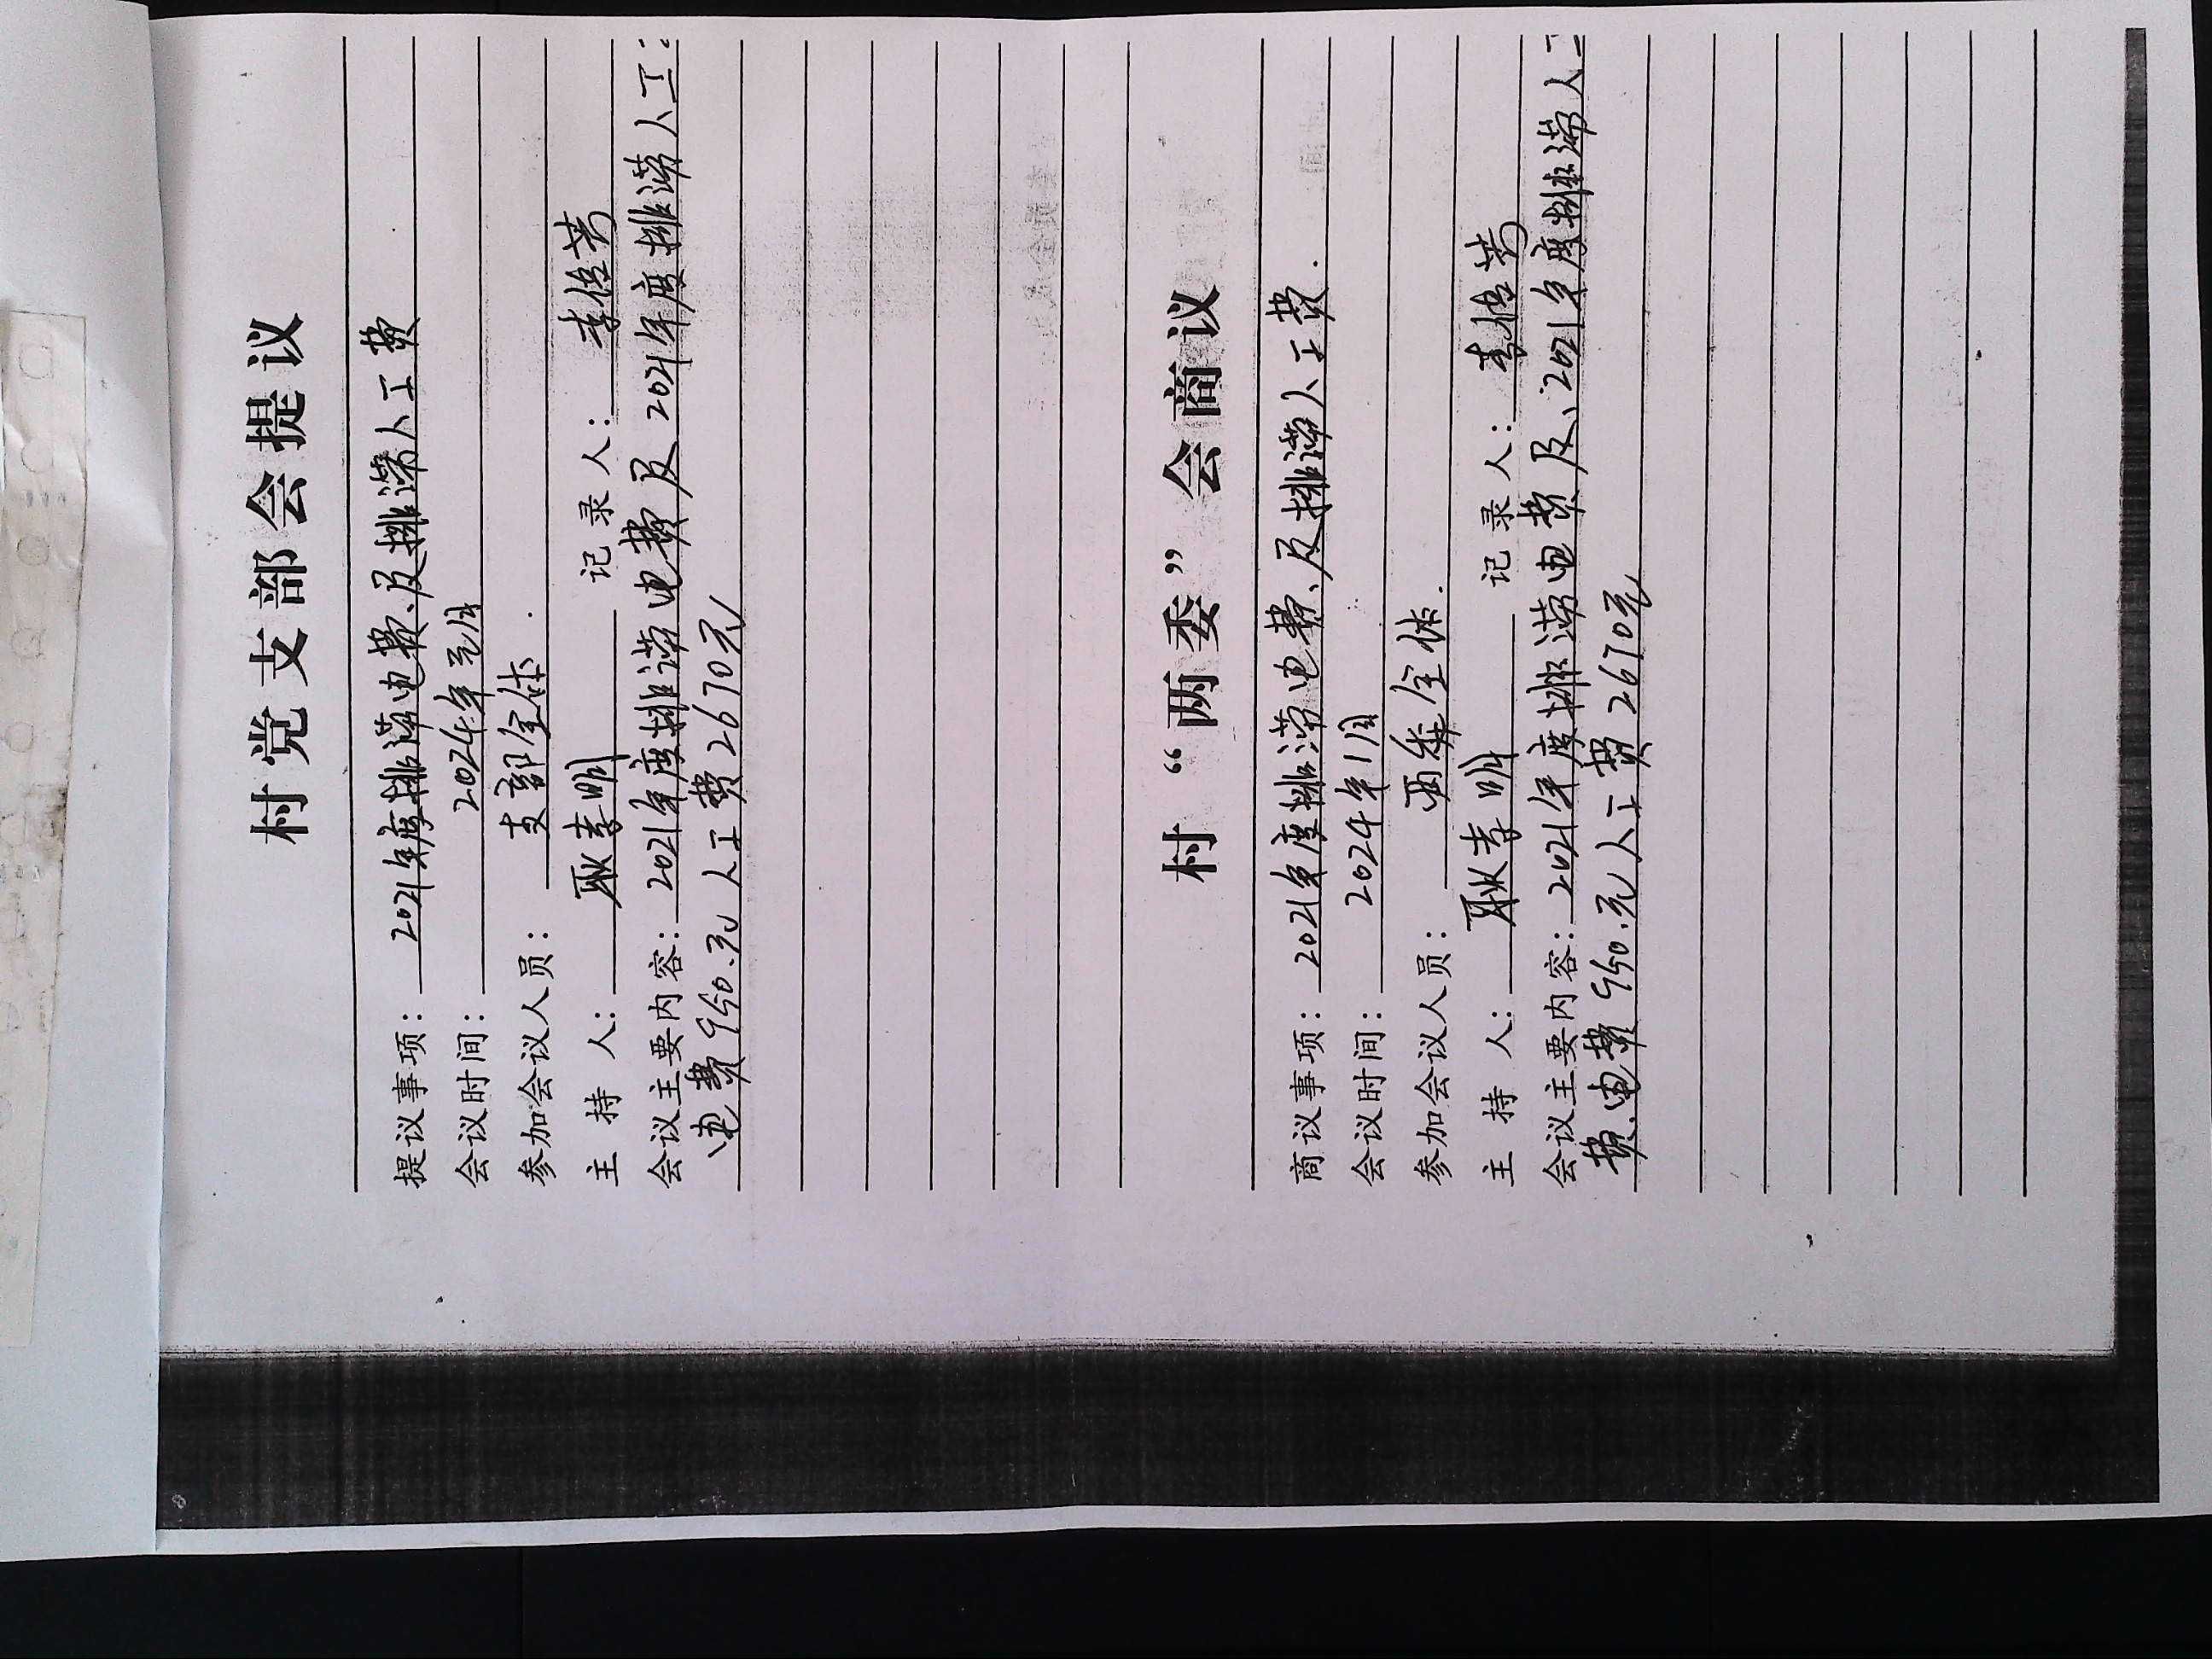 村党支部会提议
提议事项：2021年度排涝电费、及排涝人工费
会议时间：2024年元月
参加会议人员：支部全体.
主 持 人：耿孝明 记录人：李信芳
会议主要内容：2021年度排涝电费及2021年度排涝人工:
电费950.元人工费2670元
村“两委”会商议
商议事项：2021年度排涝电费、及排涝人工费.
会议时间：2024年1月
参加会议人员：两委全体.
主 持 人：耿孝明 记录人：李信芳
会议主要内容：2021年度排涝电费及、2021年度排涝人工
费.电费950.元人工费2670元